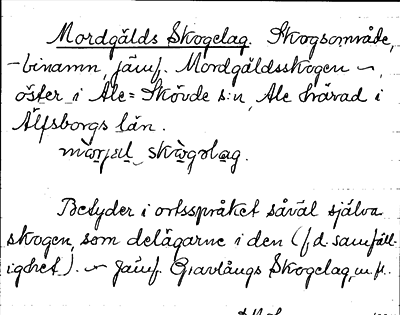 Mordgälds Skogelag. Skogsområde,
-binamn, jämf. Mordgäldsskogen ~,
öster i Ale=Skövde s:n, Ale härad i
Älfsborgs län.
skògəlag.
Betyder i ortsspråket såväl själva
skogen, som delägarne i den (f.d. samfäll-
ighet). ~ Jämf. Gravlångs Skogelag, m. fl.